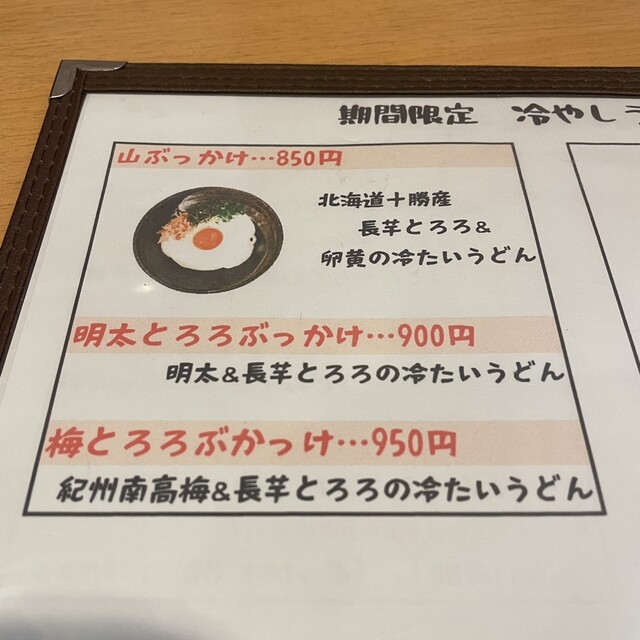 期間限定 冷やしう
山ぶっかけ…850円
北海道十勝産
長芋とろろ&
卵黄の冷たいうどん
明太とろろぶっかけ…900円
明太&長芋とろろの冷たいうどん
梅とろろぶかっけ…950円
紀州南高梅&長芋とろろの冷たいうどん